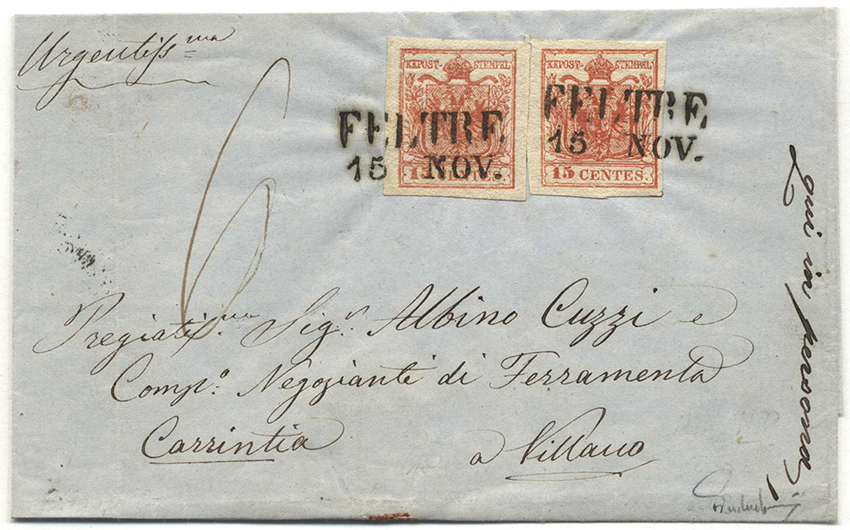 Urgentiss.ma
6
KKPOST-STEMPEL
FELTRE
15 NOV.
15 CENTES.
KKPOST-STEMPEL
FELTRE
15 NOV.
15 CENTES.
Pregiatis.mo Sigr. Albino Cuzzi e
Compo. Negoziante di Ferramenta
Carrintia a Villaco
qui in persona